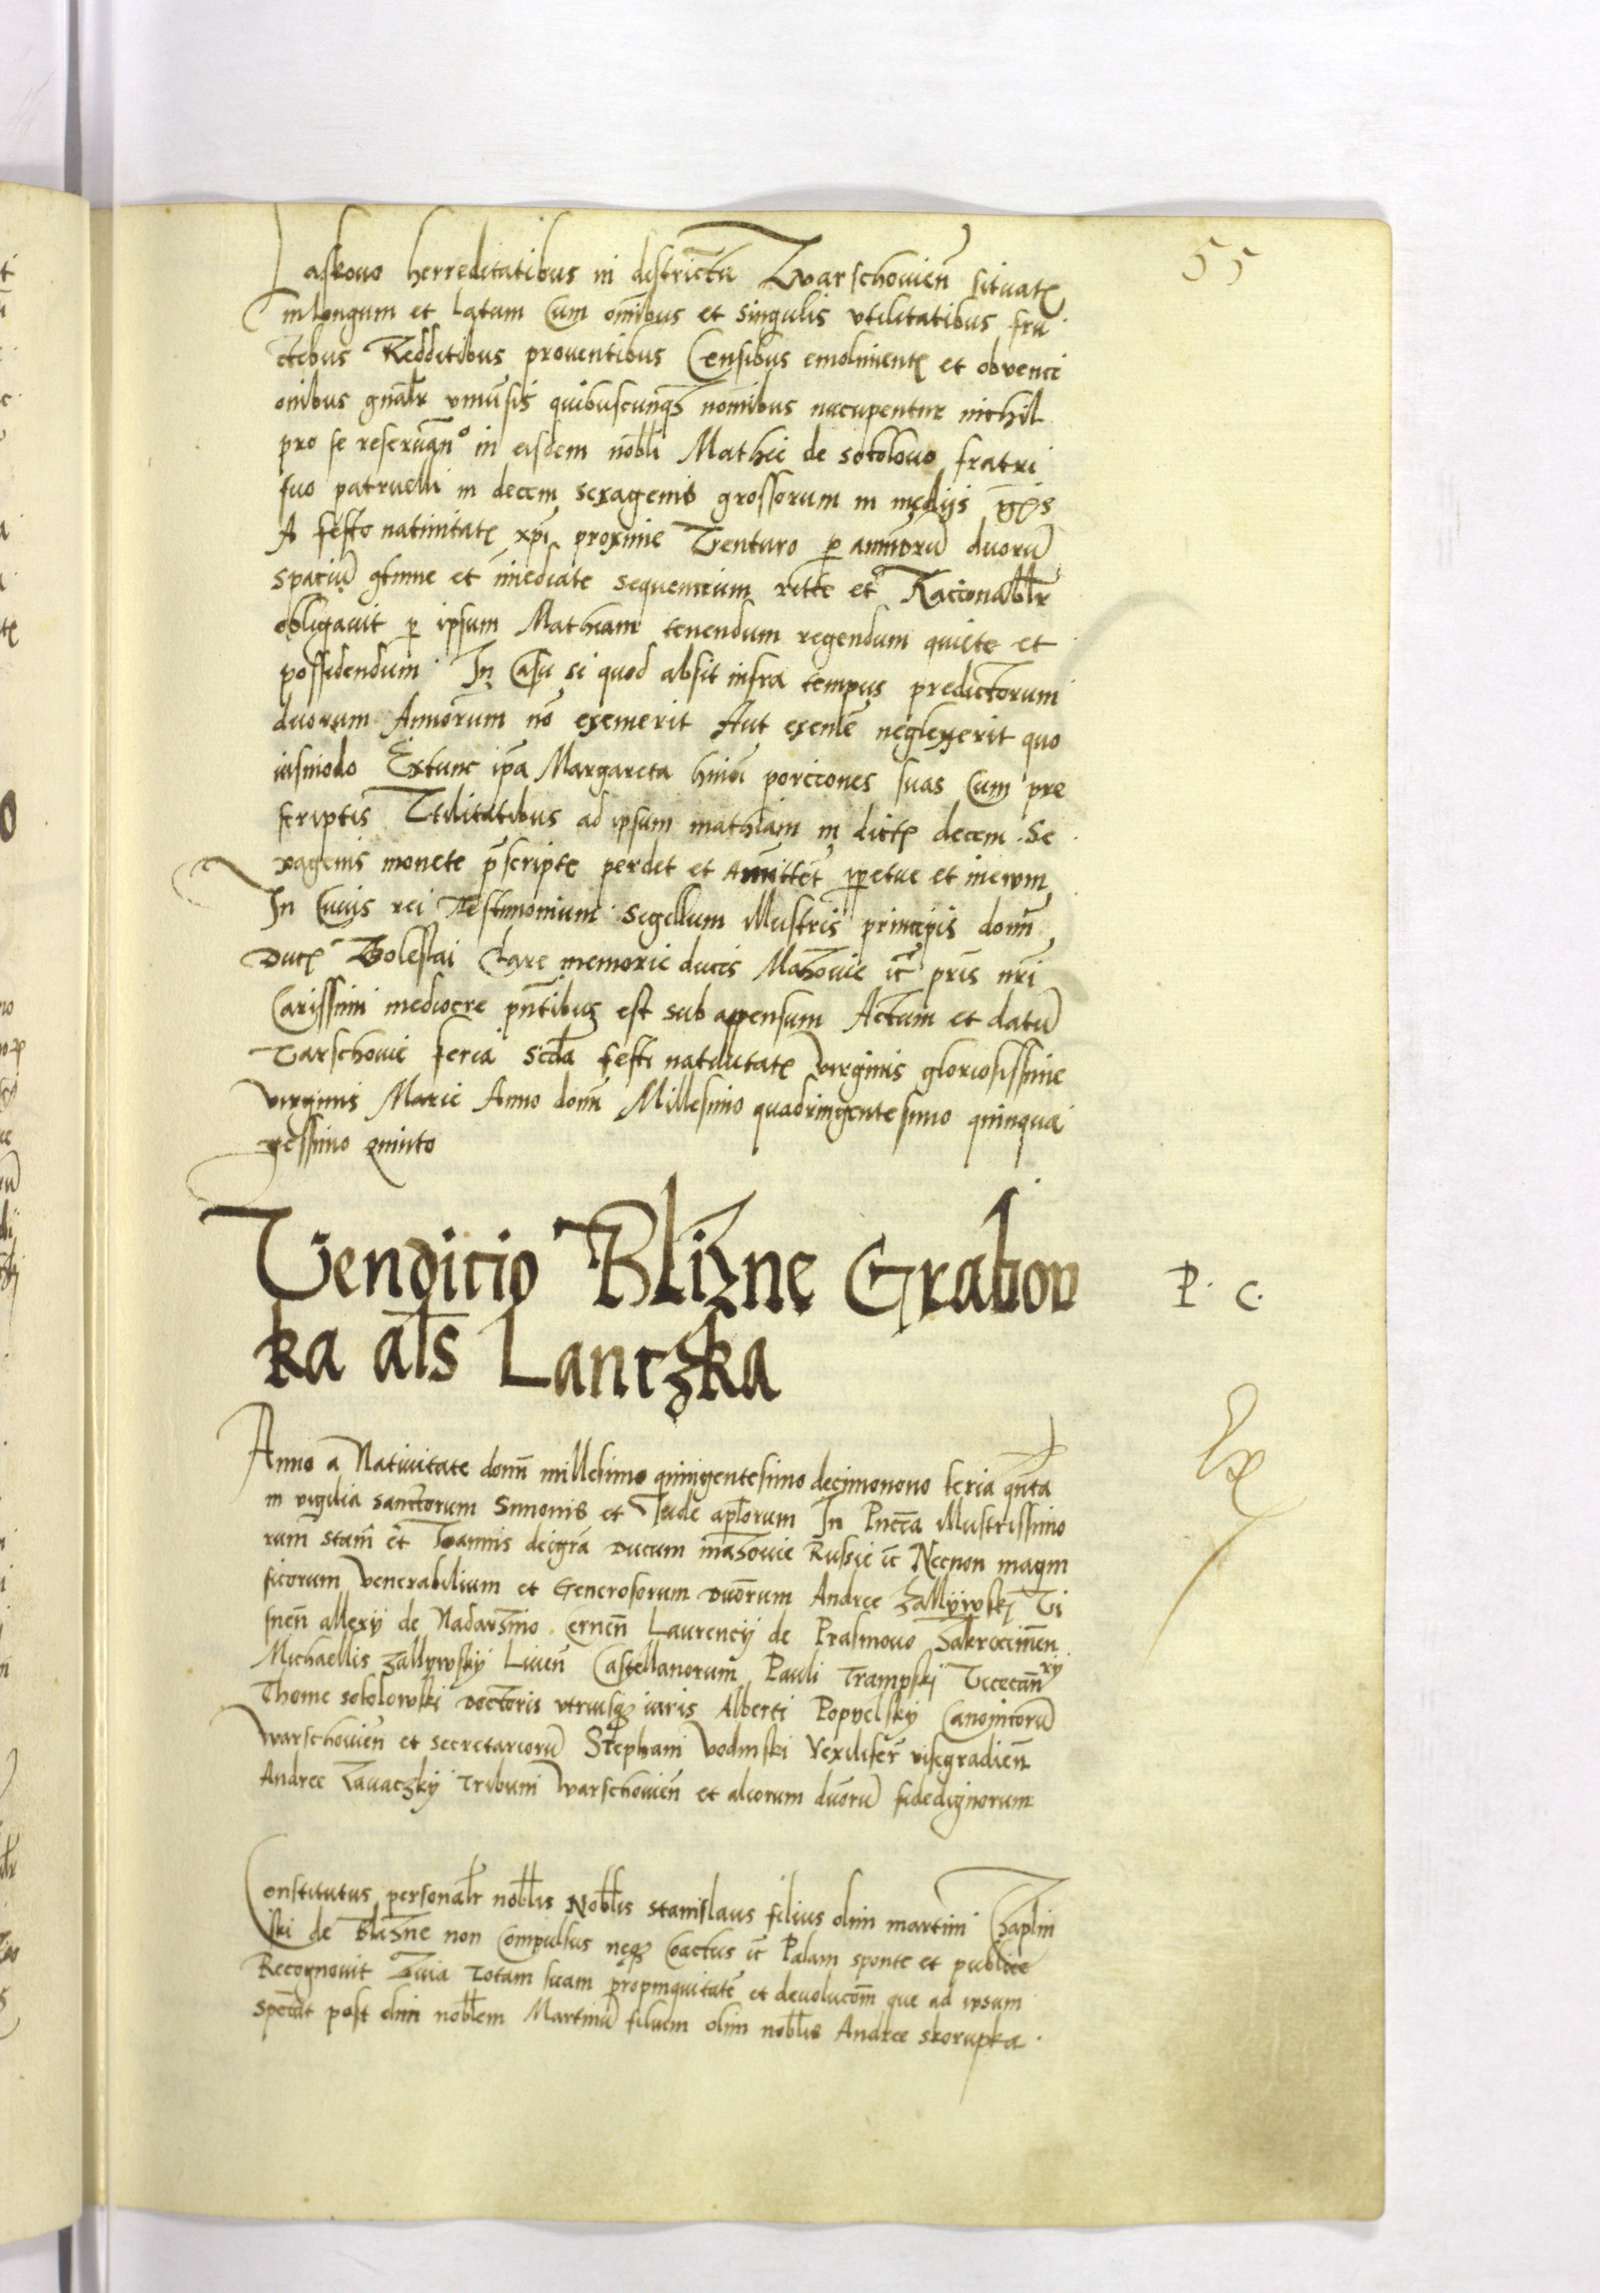 55
Laskouo herreditatibus in districtu Warschouien̄ situatꝭ
in longum et latum Cum om̄ibus et singulis vtilitatibus fru
ctibus Redditibus prouentibus Censibus emolimentꝭ et obuenci
onibus gn̄alr vniūsis quibuscunqꝫ nom̄ibus nūcupentur nichil
pro se reseruan̄º in eisdem nobl̄i Mathie de sokolouo fratri
suo patrueli in decem sexagenis grossorum in medijs
A festo natiuitatꝭ xp̄i proxime Venturo ꝑ annorū duorū
spaciū et im̄ediate sequencium ritte et Racionabl̄r
obligauit ꝑ ipsum Mathiam tenendum regendum quiete et
possidendum In Casu si quod absit infra tempus predictorum
duorum Annorum nō exemerit Aut exem̄e neglexerit quo
uismodo Extunc ip̄a Margareta hm̄oi porciones suas Cum pre
scriptis Vtilitatibus ad ipsum mathiam in dictꝭ decem Se
xagenis monete p̄scripte perdet et Amittet ꝑpetue et in ewm
In Cuius rei Testimonium Sigellum Illustris principis domī
Ducꝭ Boleslai Clare memorie ducis Mazouie ꝛc̄ pr̄is nr̄i
Carissimi mediocre pn̄tibus est sub appensum Actum et datū
Varschouie feria Scd̄a festi natiuitatꝭ virginis gloriosissime
virginis Marie Anno domī Millesimo quadringentesimo quinqua
gessimo quinto
Vendicio Blizne Grabow
ka al̄s Lanczka
P. C.
Anno a Natiuitate domī millesimo quingentesimo decimonono feria qn̄ta
in vigilia sanctorum Simonis et Iude apl̄orum In Pn̄cia Illustrissimo
rum Stani et Ioannis dei gr̄a Ducum mazouie Russie ꝛc̄ Necnon magni
ficorum venerabilium et Generosorum Duōrum Andree Zallywskj Vi
snen̄ allexy de Nadarzino Cernen̄ Laurencij de Prasmouo Zakrocimen̄
Michaellis Zallywskij Liuen̄ Castellanorum Pauli Trampskj Vicecan̄rij
Thome sokolowski Doctoris vtriusqꝫ iuris Alberti Popyelskÿ Canonicorū
Warschouien̄ et secretariorū Stephani Vodinski Vexiliferi visegradien̄
Andree Zauaczkij Tribuni Warschouien̄ et aliorum duōrū fidedignorum
Constitutus personalr̄ nobl̄is Nobl̄is stanislaus filius olim martini Chaplin
ski de Blizne non Compulsus neqꝫ Coactus ꝛc̄ Palam sponte et publice
Recognouit Quia Totam suam propinquitatē et deuolucōm̄ que ad ipsum
spectat post olim nobl̄em Martinū filium olim nobl̄is Andree skorupka